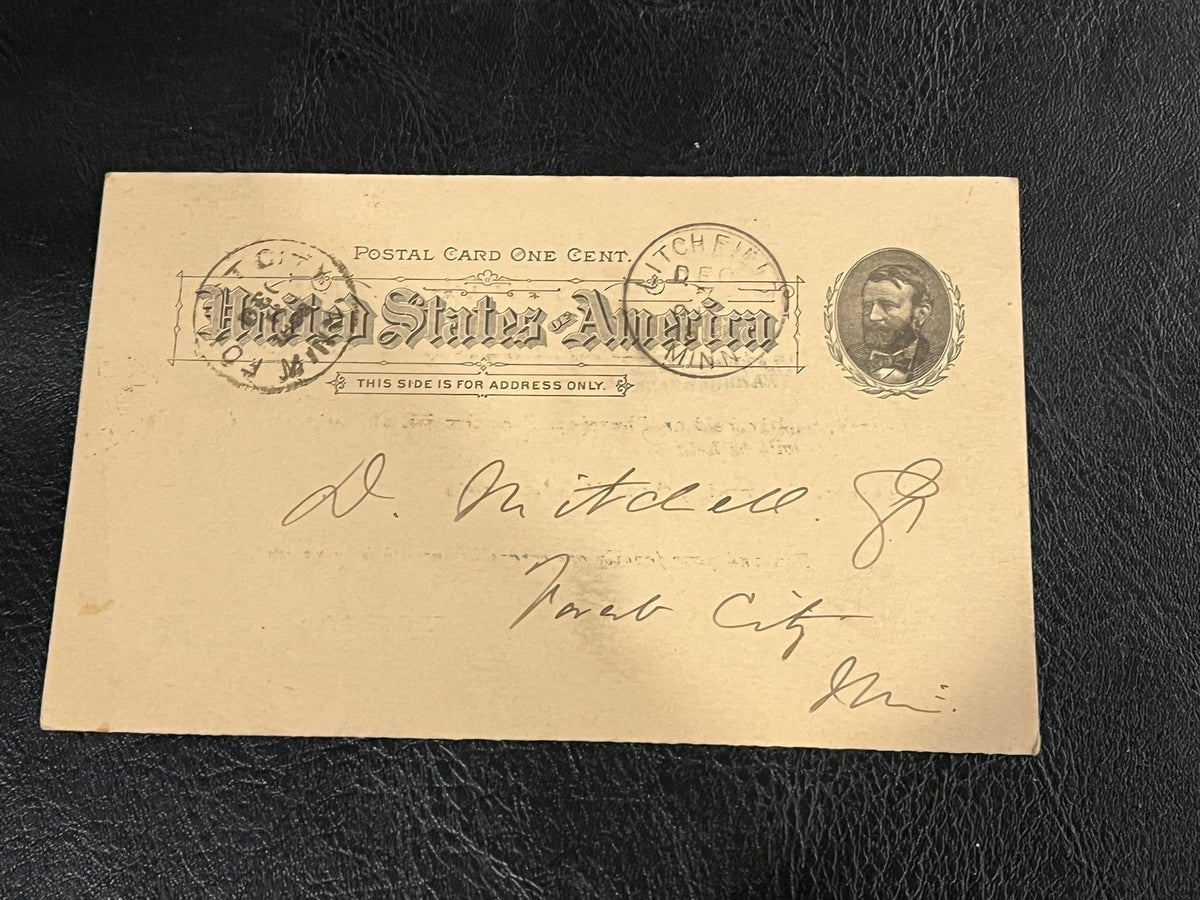 POSTAL CARD ONE CENT.
United States of America
THIS SIDE IS FOR ADDRESS ONLY.
CITY
MIN
LITCHFIEL
DEC
7
MINN
D. Mitchell Jr
Forest City
Min: